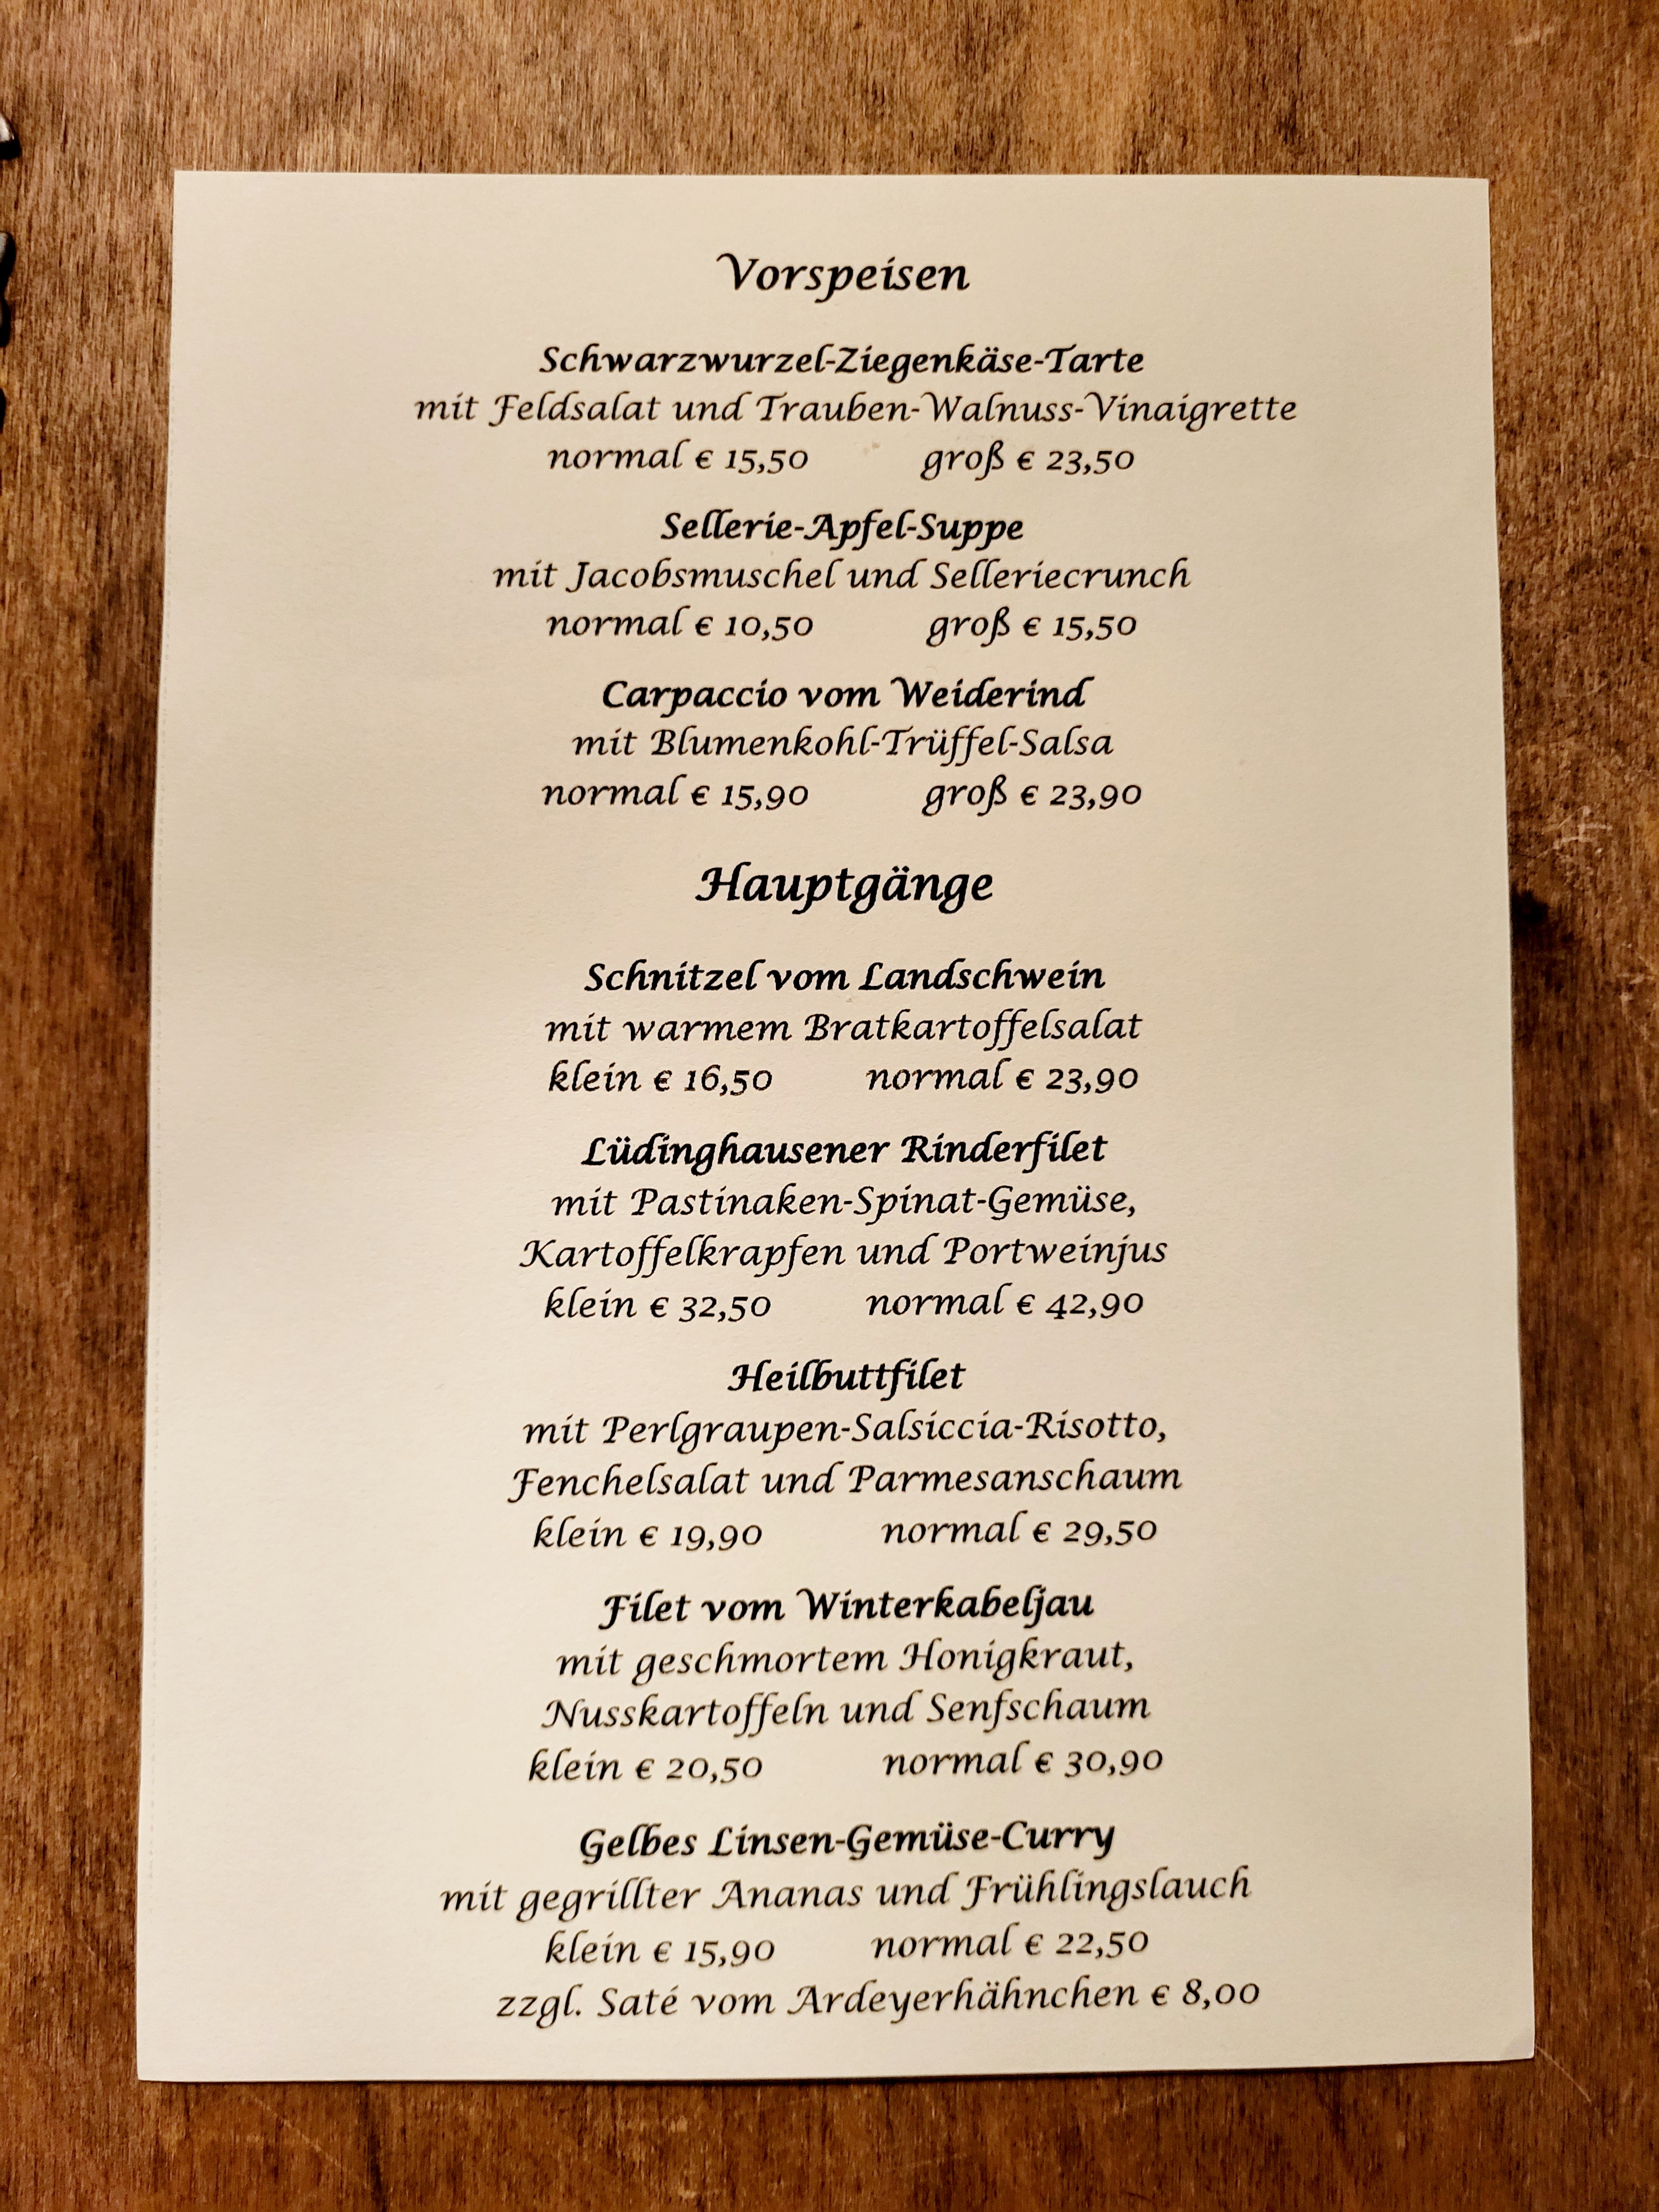 Vorspeisen
Schwarzwurzel-Ziegenkäse-Tarte
mit Feldsalat und Trauben-Walnuss-Vinaigrette
normal € 15,50 groß € 23,50
Sellerie-Apfel-Suppe
mit Jacobsmuschel und Selleriecrunch
normal € 10,50 groß € 15,50
Carpaccio vom Weiderind
mit Blumenkohl-Trüffel-Salsa
normal € 15,90 groß € 23,90
Hauptgänge
Schnitzel vom Landschwein
mit warmem Bratkartoffelsalat
klein € 16,50 normal € 23,90
Lüdinghausener Rinderfilet
mit Pastinaken-Spinat-Gemüse,
Kartoffelkrapfen und Portweinjus
klein € 32,50 normal € 42,90
Heilbuttfilet
mit Perlgraupen-Salsiccia-Risotto,
Fenchelsalat und Parmesanschaum
klein € 19,90 normal € 29,50
Filet vom Winterkabeljau
mit geschmortem Honigkraut,
Nusskartoffeln und Senfschaum
klein € 20,50 normal € 30,90
Gelbes Linsen-Gemüse-Curry
mit gegrillter Ananas und Frühlingslauch
klein € 15,90 normal € 22,50
zzgl. Saté vom Ardeyerhähnchen € 8,00